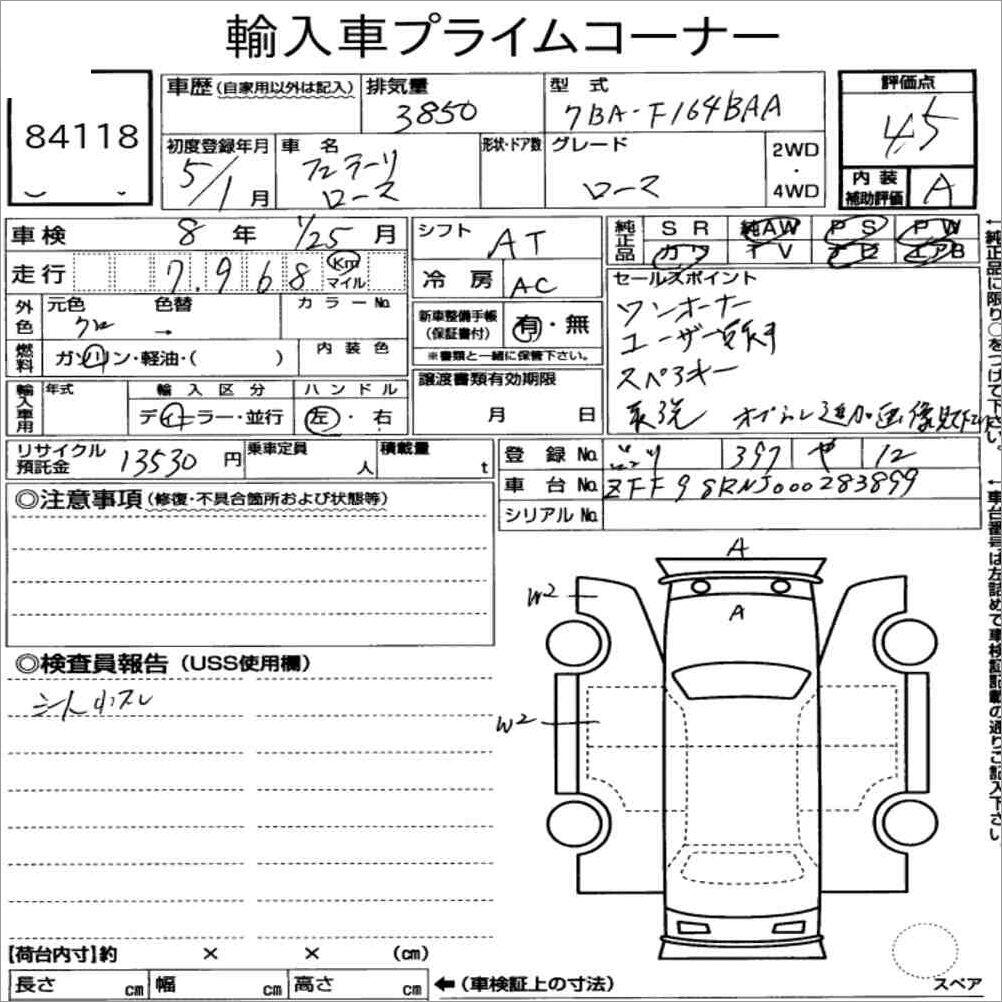 輸入車プライムコーナー
84118
車歴(自家用以外は記入) 排気量 3850 型式 7BA-F164BAA 評価点 4.5
初度登録年月 5/1月 車名 フェラーリ ローマ 形状・ドア数 グレード ローマ 2WD・4WD 内装補助評価 A
車検 8年 1/25月 シフト AT 純正品 SR 純AW PS PW
走行 7,968 Km マイル 冷房 AC カワ TV ナビ エアB
外色 元色 クロ 色替 → カラーNo. 新車整備手帳(保証書付) 有・無 ※書類と一緒に保管下さい。
燃料 ガソリン・軽油・( ) 内装色
セールスポイント
ワンオーナー
ユーザー買取
スペアキー
輸入車用 年式 輸入区分 ディーラー・並行 ハンドル 左・右 譲渡書類有効期限 月 日
リサイクル預託金 13530円 乗車定員 人 積載量 t 登録No. 397 や 12
車台No. ZFF98RNJ000283899
シリアルNo.
◎注意事項(修復・不具合箇所および状態等)
◎検査員報告(USS使用欄)
シート小スレ
A
A
W2
W2
【荷台内寸】約 × × (cm)
長さ cm 幅 cm 高さ cm ←(車検証上の寸法)
スペア
←純正品に限り○をつけて下さい。
←車台番号は左詰めで車検証記載の通りご記入下さい。